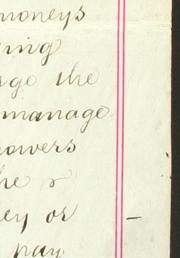 moneys
ing
go the
manage
powers
he &
ey or
pay